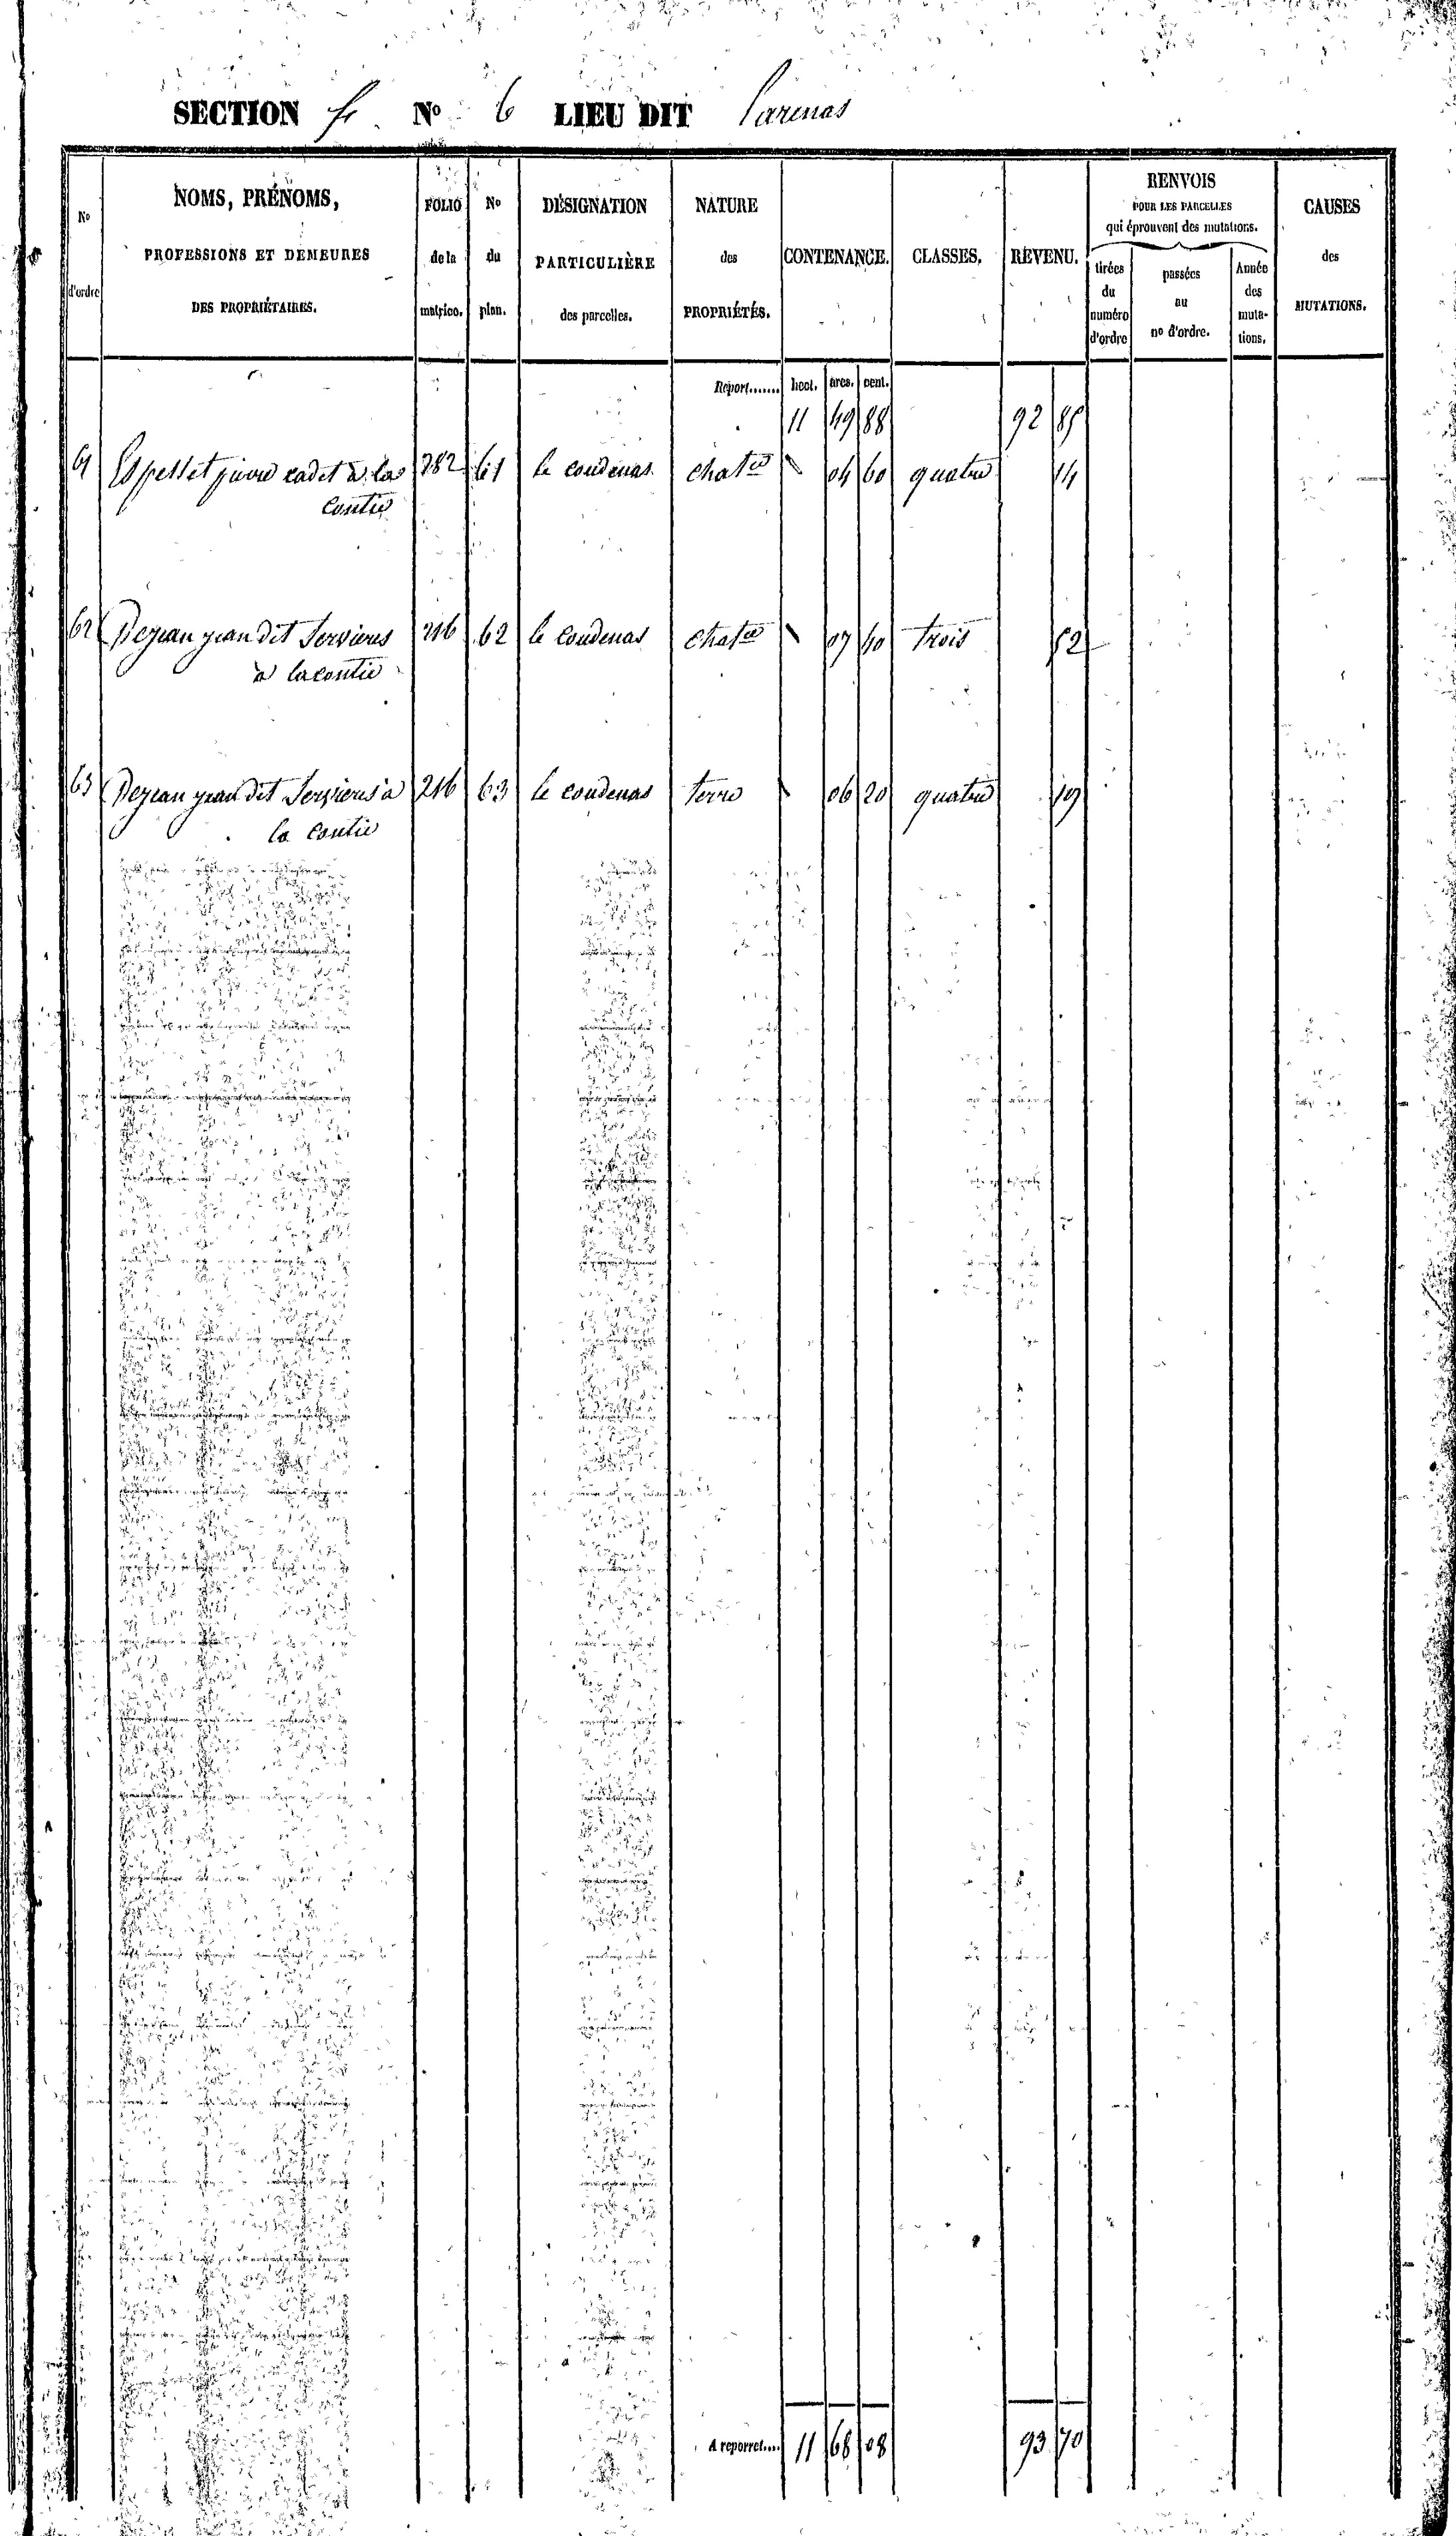 SECTION f. Nº 6 LIEU DIT Parenas
Nº d'ordre
NOMS, PRÉNOMS,
PROFESSIONS ET DEMEURES
DES PROPRIÉTAIRES.
FOLIO de la matrice.
Nº du plan.
DÉSIGNATION
PARTICULIÈRE
des parcelles.
NATURE
des
PROPRIÉTÉS.
CONTENANCE.
CLASSES.
REVENU.
RENVOIS
POUR LES PARCELLES
qui éprouvent des mutations.
tirées du numéro d'ordre
passées au nº d'ordre.
Année des muta-tions.
CAUSES
des
MUTATIONS.
Report....... hect. ares. cent.
11 49 88 92 85
61 Espellet cadet à la 282 61 le coudenas chatie 04 60 quatre 14
Coutie
62 Dejean jean dit Servieres 216 62 le Coudenas chatie 07 40 trois 52
à la coutie
63 Dejean jean dit Servieres à 216 63 le coudenas terre 06 20 quatre 19
la Coutie
A reporter.... 11 68 08 93 70